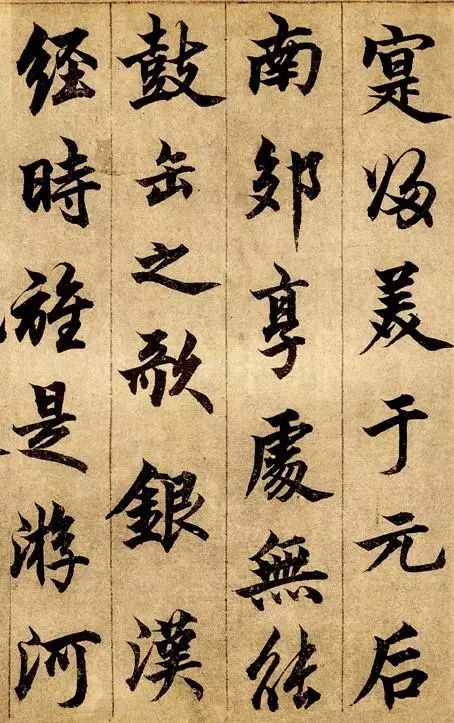 寔歸美于元后
南郊享處無能
鼓缶之歌銀漢
經時旌是游河